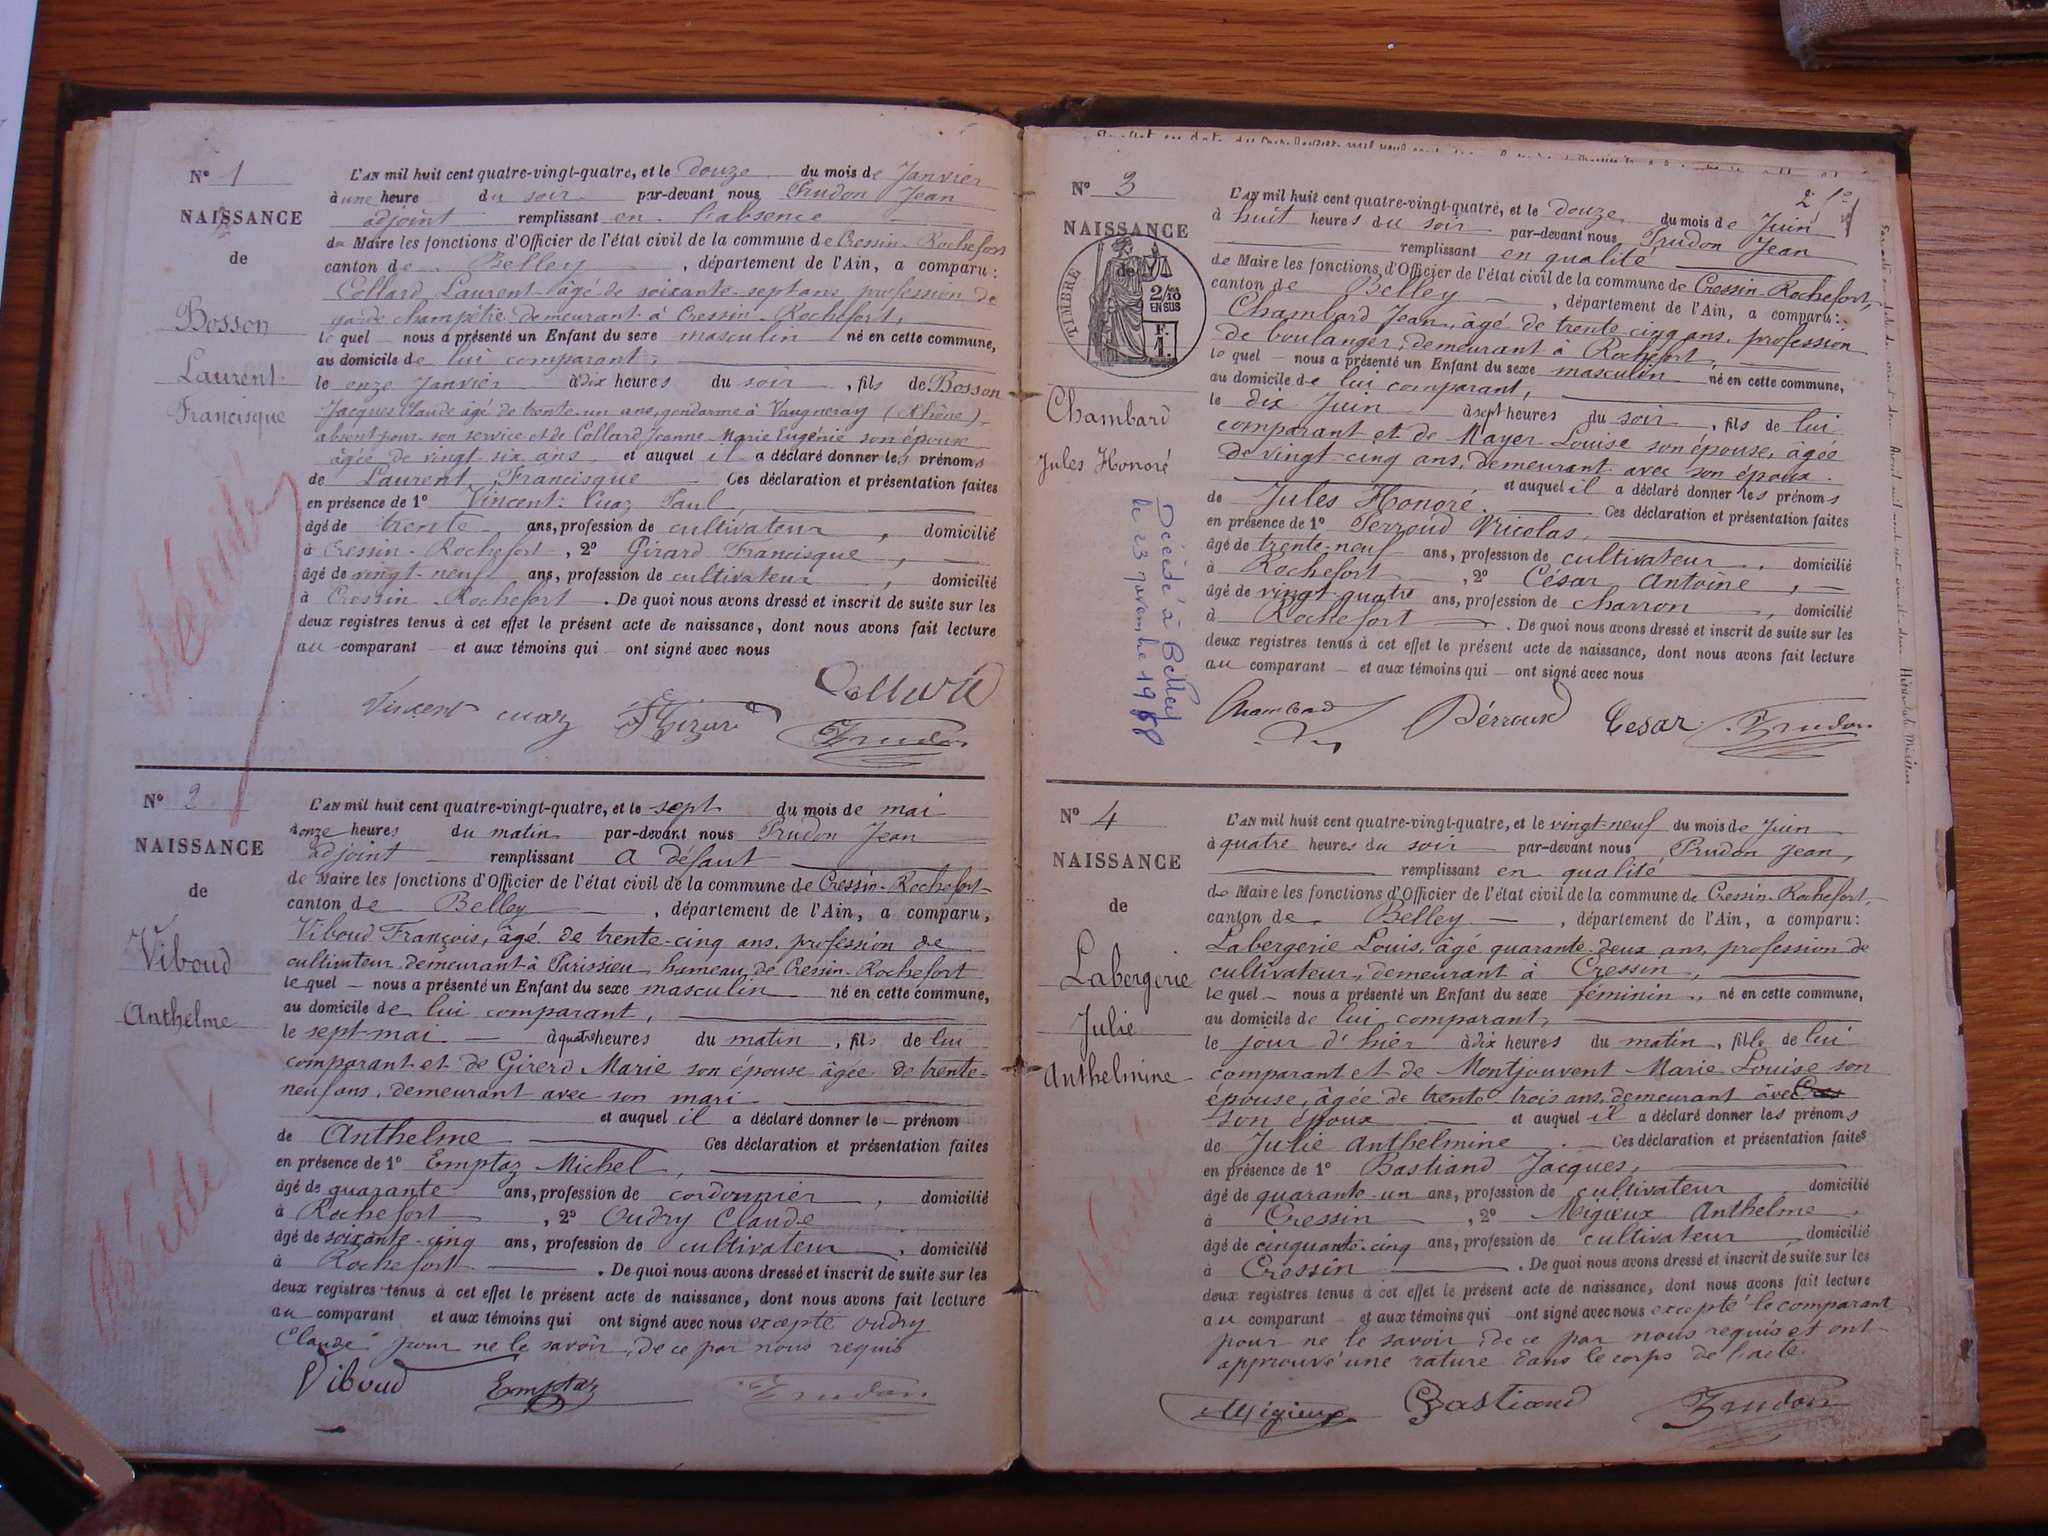 N° 1
NAISSANCE
de
Bosson
Laurent
Francisque
L'AN mil huit cent quatre-vingt-quatre, et le Douze du mois de Janvier
à une heure du soir par-devant nous Prudon Jean
adjoint remplissant en l'absence
du Maire les fonctions d'Officier de l'état civil de la commune de Cressin-Rochefort
canton de Belley, département de l'Ain, a comparu :
Collard Laurent âgé de soixante-sept ans profession de
garde champêtre demeurant à Cressin-Rochefort,
lequel nous a présenté un Enfant du sexe masculin né en cette commune,
au domicile de lui comparant,
le onze Janvier à dix heures du soir, fils de Bosson
Jacques Claude âgé de trente-un ans, gendarme à Vaugneray (Rhône),
absent pour son service et de Collard Jeanne Marie Eugénie son épouse
âgée de vingt six ans et auquel il a déclaré donner les prénoms
de Laurent Francisque Ces déclaration et présentation faites
en présence de 1° Vincent Cuaz Paul
âgé de trente ans, profession de cultivateur, domicilié
à Cressin-Rochefort, 2° Girard Francisque,
âgé de vingt-neuf ans, profession de cultivateur, domicilié
à Cressin-Rochefort. De quoi nous avons dressé et inscrit de suite sur les
deux registres tenus à cet effet le présent acte de naissance, dont nous avons fait lecture
au comparant et aux témoins qui ont signé avec nous
Collard
Vincent cuaz Girard
Prudon
N° 2
NAISSANCE
de
Viboud
Anthelme
L'AN mil huit cent quatre-vingt-quatre, et le sept du mois de mai
à onze heures du matin par-devant nous Prudon Jean
adjoint remplissant à défaut
de Maire les fonctions d'Officier de l'état civil de la commune de Cressin-Rochefort
canton de Belley, département de l'Ain, a comparu,
Viboud François, âgé de trente-cinq ans, profession de
cultivateur demeurant à Parissieu hameau de Cressin-Rochefort
lequel nous a présenté un Enfant du sexe masculin né en cette commune,
au domicile de lui comparant,
le sept mai à quatre heures du matin, fils de lui
comparant et de Girerd Marie son épouse âgée de trente-
neuf ans, demeurant avec son mari
et auquel il a déclaré donner le prénom
de Anthelme Ces déclaration et présentation faites
en présence de 1° Emptaz Michel,
âgé de quarante ans, profession de cordonnier, domicilié
à Rochefort, 2° Oudry Claude
âgé de soixante-cinq ans, profession de cultivateur, domicilié
à Rochefort. De quoi nous avons dressé et inscrit de suite sur les
deux registres tenus à cet effet le présent acte de naissance, dont nous avons fait lecture
au comparant et aux témoins qui ont signé avec nous excepté Oudry
Claude pour ne le savoir, de ce par nous requis
Viboud Emptaz Prudon
décédé
N° 3
NAISSANCE
de
TIMBRE
2/10
EN SUS
F.
1.
Chambard
Jules Honoré
Décédé à Belley
le 23 novembre 1968
L'AN mil huit cent quatre-vingt-quatre, et le Douze du mois de Juin
à huit heures du soir par-devant nous Prudon Jean
remplissant en qualité
de Maire les fonctions d'Officier de l'état civil de la commune de Cressin-Rochefort,
canton de Belley, département de l'Ain, a comparu :
Chambard Jean, âgé de trente cinq ans, profession
de boulanger, demeurant à Rochefort,
lequel nous a présenté un Enfant du sexe masculin né en cette commune,
au domicile de lui comparant,
le dix Juin à sept heures du soir, fils de lui
comparant et de Mayer Louise son épouse, âgée
de vingt cinq ans, demeurant avec son époux.
et auquel il a déclaré donner les prénoms
de Jules Honoré. Ces déclaration et présentation faites
en présence de 1° Perroud Nicolas,
âgé de trente-neuf ans, profession de cultivateur, domicilié
à Rochefort, 2° César Antoine,
âgé de vingt-quatre ans, profession de charron, domicilié
à Rochefort. De quoi nous avons dressé et inscrit de suite sur les
deux registres tenus à cet effet le présent acte de naissance, dont nous avons fait lecture
au comparant et aux témoins qui ont signé avec nous
Chambard Pérroud Cesar Prudon
N° 4
NAISSANCE
de
Labergerie
Julie
Anthelmine
L'AN mil huit cent quatre-vingt-quatre, et le vingt-neuf du mois de Juin
à quatre heures du soir par-devant nous Prudon Jean,
remplissant en qualité
de Maire les fonctions d'Officier de l'état civil de la commune de Cressin-Rochefort,
canton de Belley, département de l'Ain, a comparu :
Labergerie Louis, âgé quarante-deux ans, profession de
cultivateur, demeurant à Cressin,
lequel nous a présenté un Enfant du sexe féminin, né en cette commune,
au domicile de lui comparant,
le jour d'hier à dix heures du matin, fille de lui
comparant et de Montjouvent Marie Louise son
épouse, âgée de trente-trois ans, demeurant avec Cres
son époux et auquel il a déclaré donner les prénoms
de Julie Anthelmine. Ces déclaration et présentation faites
en présence de 1° Bastiand Jacques,
âgé de quarante-un ans, profession de cultivateur domicilié
à Cressin, 2° Migieux Anthelme,
âgé de cinquante-cinq ans, profession de cultivateur, domicilié
à Cressin. De quoi nous avons dressé et inscrit de suite sur les
deux registres tenus à cet effet le présent acte de naissance, dont nous avons fait lecture
au comparant et aux témoins qui ont signé avec nous excepté le comparant
pour ne le savoir, de ce par nous requis et ont
approuvé une rature dans le corps de l'acte.
Migieux Bastiand Prudon
décédée